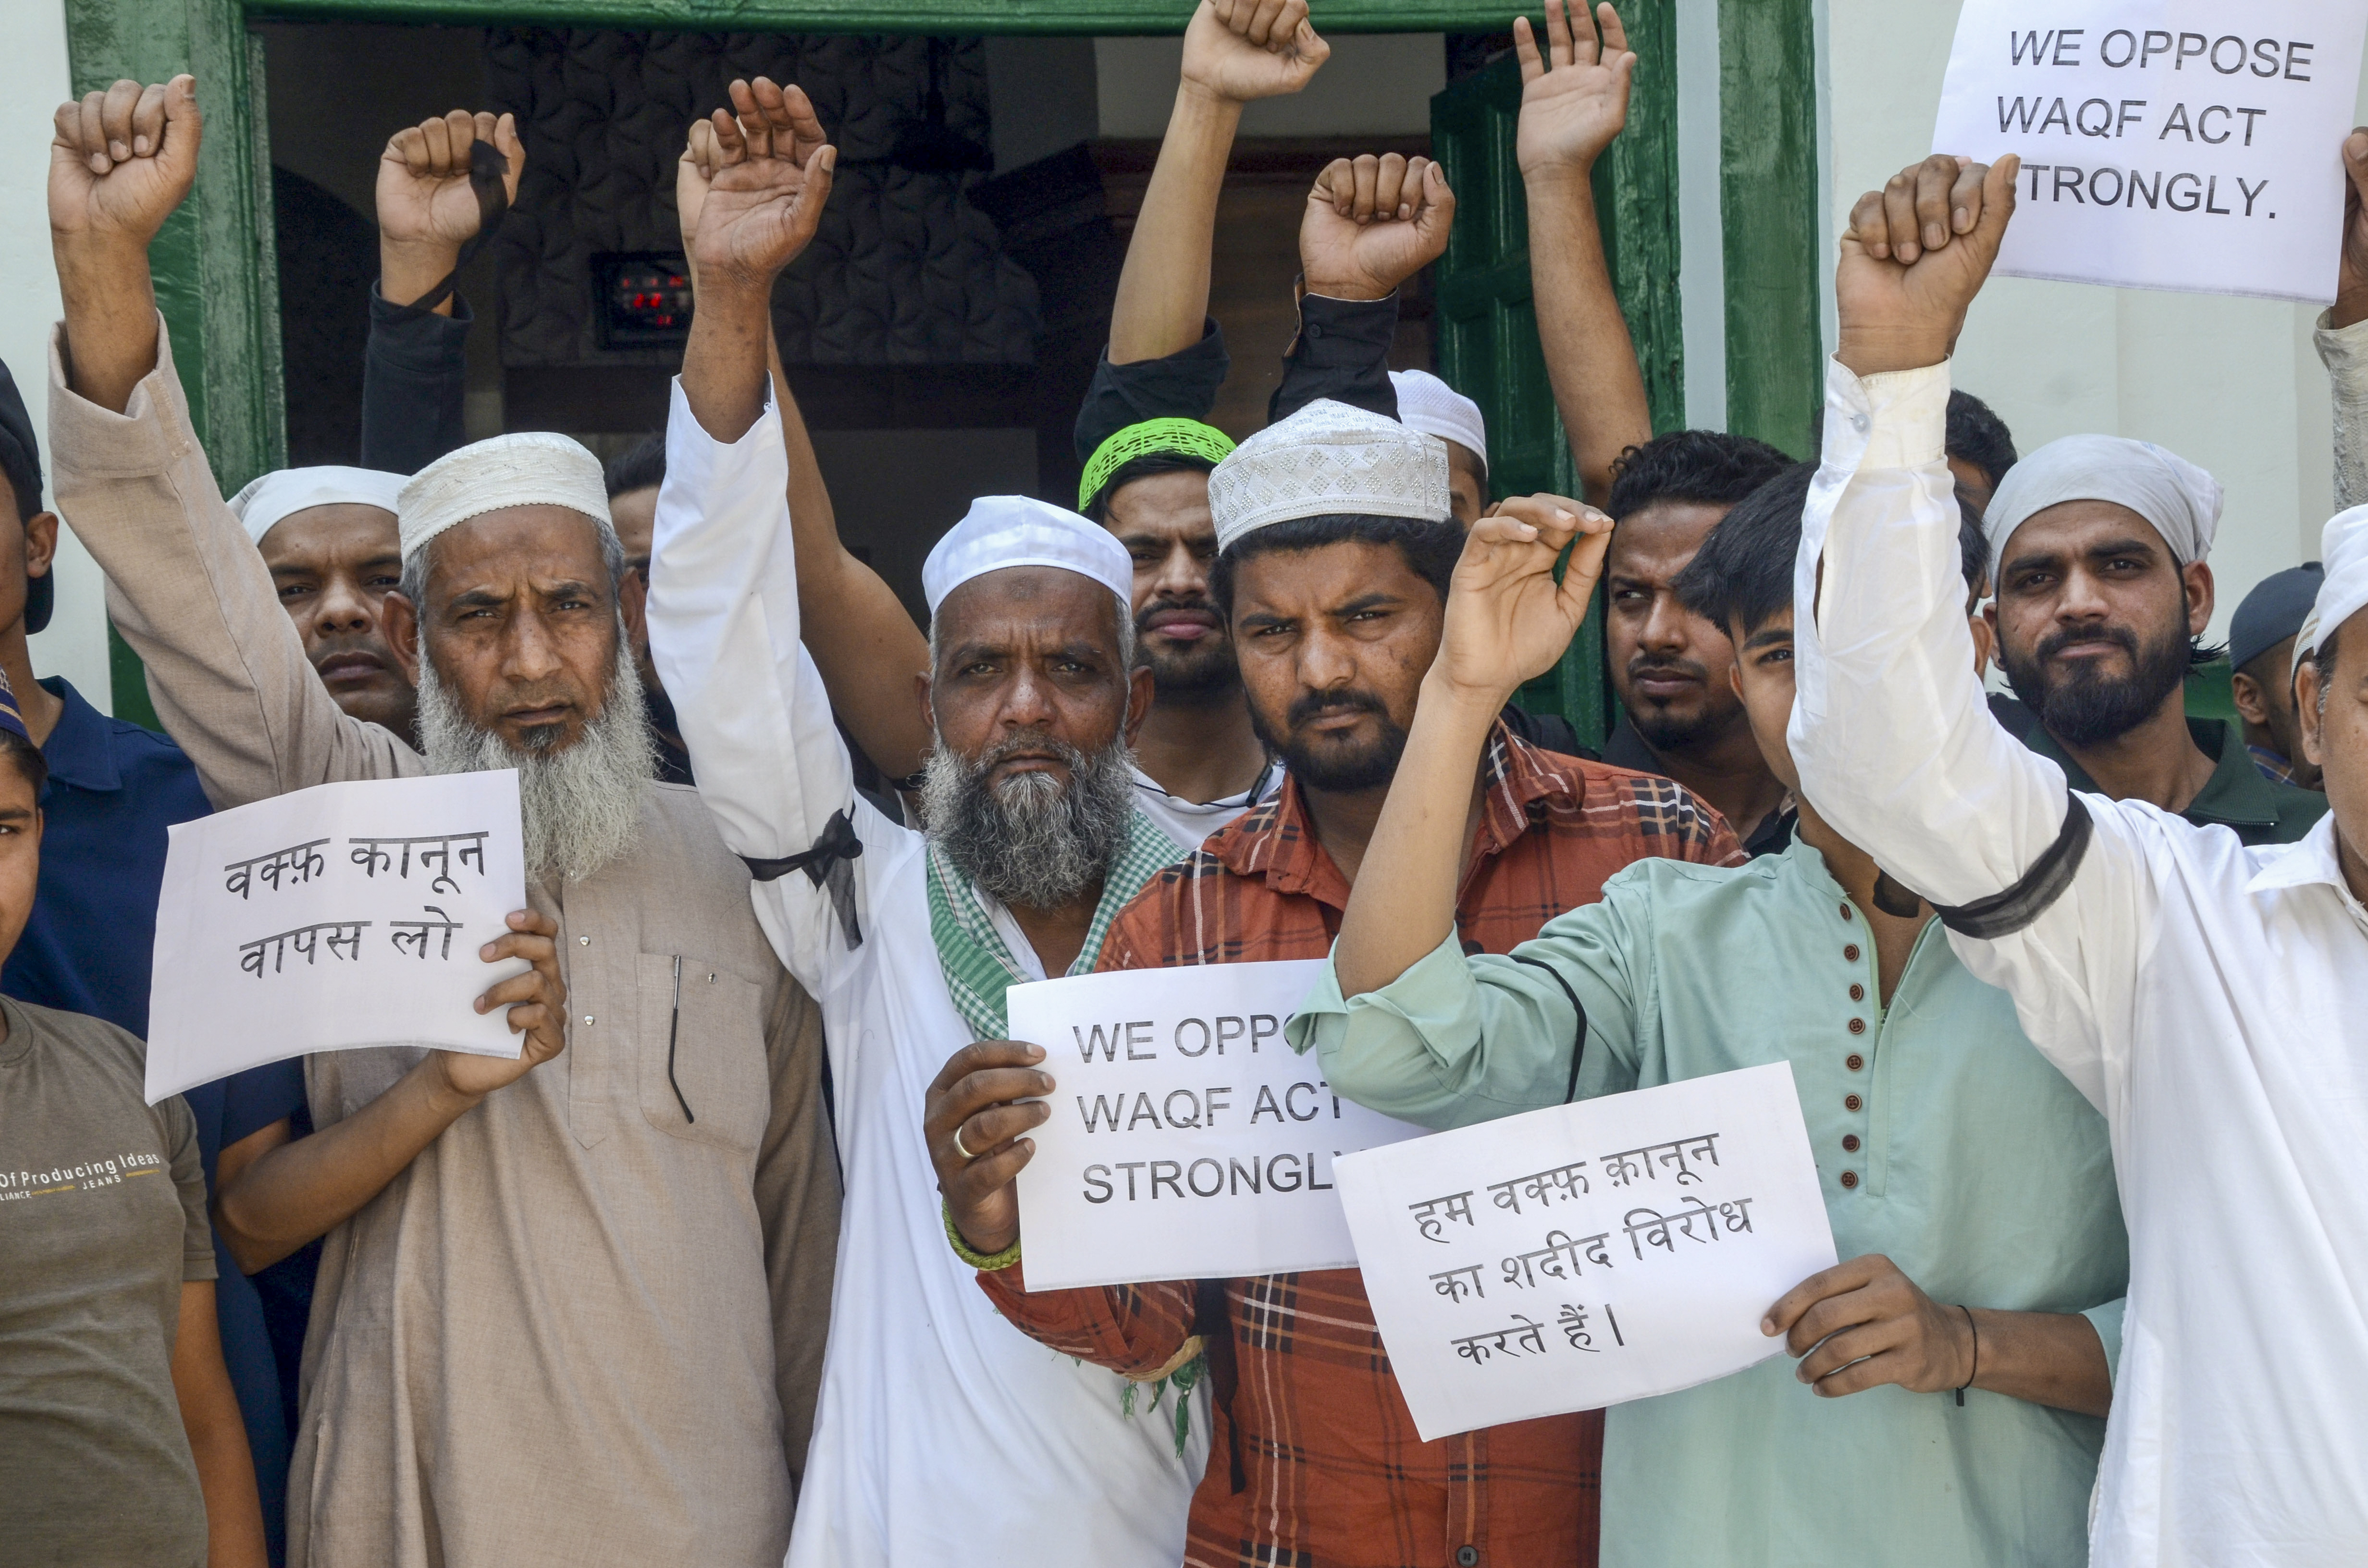 WE OPPOSE
WAQF ACT
TRONGLY.
वक्फ़ कानून
वापस लो
WE OPPO
WAQF ACT
STRONGLY
हम वक्फ़ क़ानून
का शदीद विरोध
करते हैं।
Of Producing Ideas
LIANCE JEANS